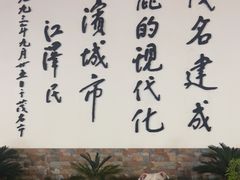 茂名建成
能的现代化
滨城市
江泽民
一九九三年九月廿五日于茂名